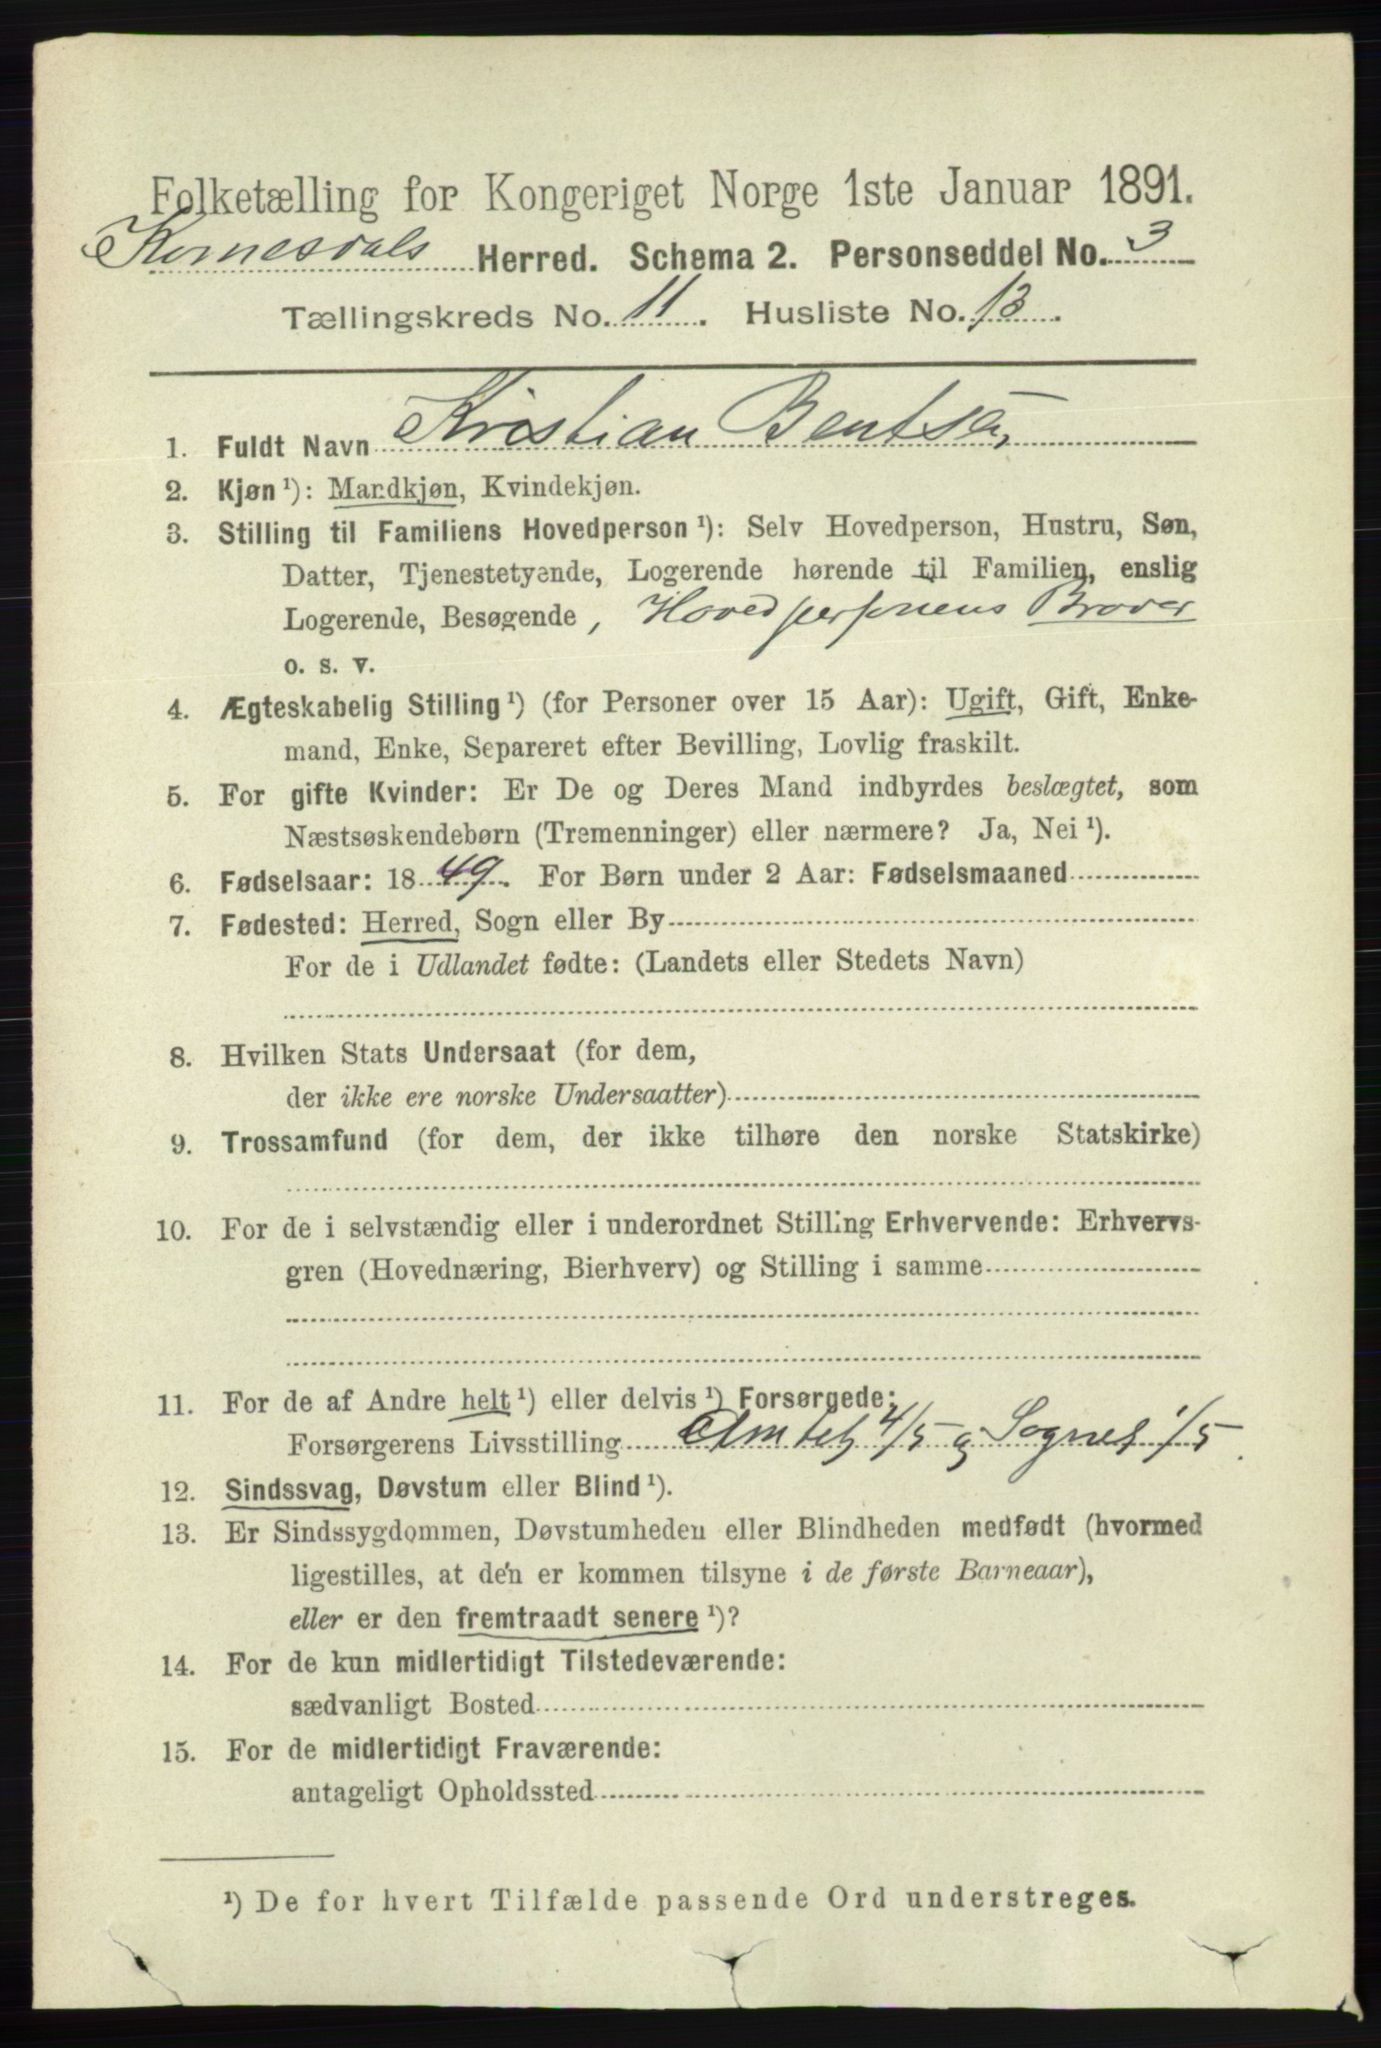 Folketælling for Kongeriget Norge 1ste Januar 1891.
Herred. Schema 2. Personseddel No. 3
Tællingskreds No. 11. Husliste No. 13.
1. Fuldt Navn Kristian Bentsen
2. Kjøn ¹): Mandkjøn, Kvindekjøn.
3. Stilling til Familiens Hovedperson ¹): Selv Hovedperson, Hustru, Søn,
Datter, Tjenestetyende, Logerende hørende til Familien, enslig
Logerende, Besøgende, Hovedpersonens Broder
o. s. v.
4. Ægteskabelig Stilling ¹) (for Personer over 15 Aar): Ugift, Gift, Enke-
mand, Enke, Separeret efter Bevilling, Lovlig fraskilt.
5. For gifte Kvinder: Er De og Deres Mand indbyrdes beslægtet, som
Næstsøskendebørn (Tremenninger) eller nærmere? Ja, Nei ¹).
6. Fødselsaar: 1849. For Børn under 2 Aar: Fødselsmaaned
7. Fødested: Herred, Sogn eller By
For de i Udlandet fødte: (Landets eller Stedets Navn)
8. Hvilken Stats Undersaat (for dem,
der ikke ere norske Undersaatter)
9. Trossamfund (for dem, der ikke tilhøre den norske Statskirke)
10. For de i selvstændig eller i underordnet Stilling Erhvervende: Erhvervs-
gren (Hovednæring, Bierhverv) og Stilling i samme
11. For de af Andre helt ¹) eller delvis ¹) Forsørgede:
Forsørgerens Livsstilling Amtets 4/5 og Sognet 1/5.
12. Sindssvag, Døvstum eller Blind ¹).
13. Er Sindssygdommen, Døvstumheden eller Blindheden medfødt (hvormed
ligestilles, at den er kommen tilsyne i de første Barneaar),
eller er den fremtraadt senere ¹)?
14. For de kun midlertidigt Tilstedeværende:
sædvanligt Bosted
15. For de midlertidigt Fraværende:
antageligt Opholdssted
¹) De for hvert Tilfælde passende Ord understreges.